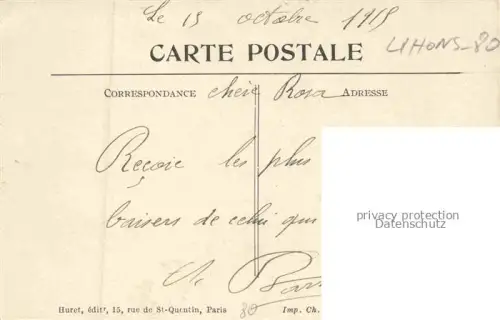 Le 13 octobre 1915
CARTE POSTALE
LIHONS_80
CORRESPONDANCE chère Rosa ADRESSE
Reçoie les plus
baisers de celui qui
privacy protection
Datenschutz
Huret, édit<sup>r</sup>, 15, rue de St-Quentin, Paris 80 Imp. Ch.